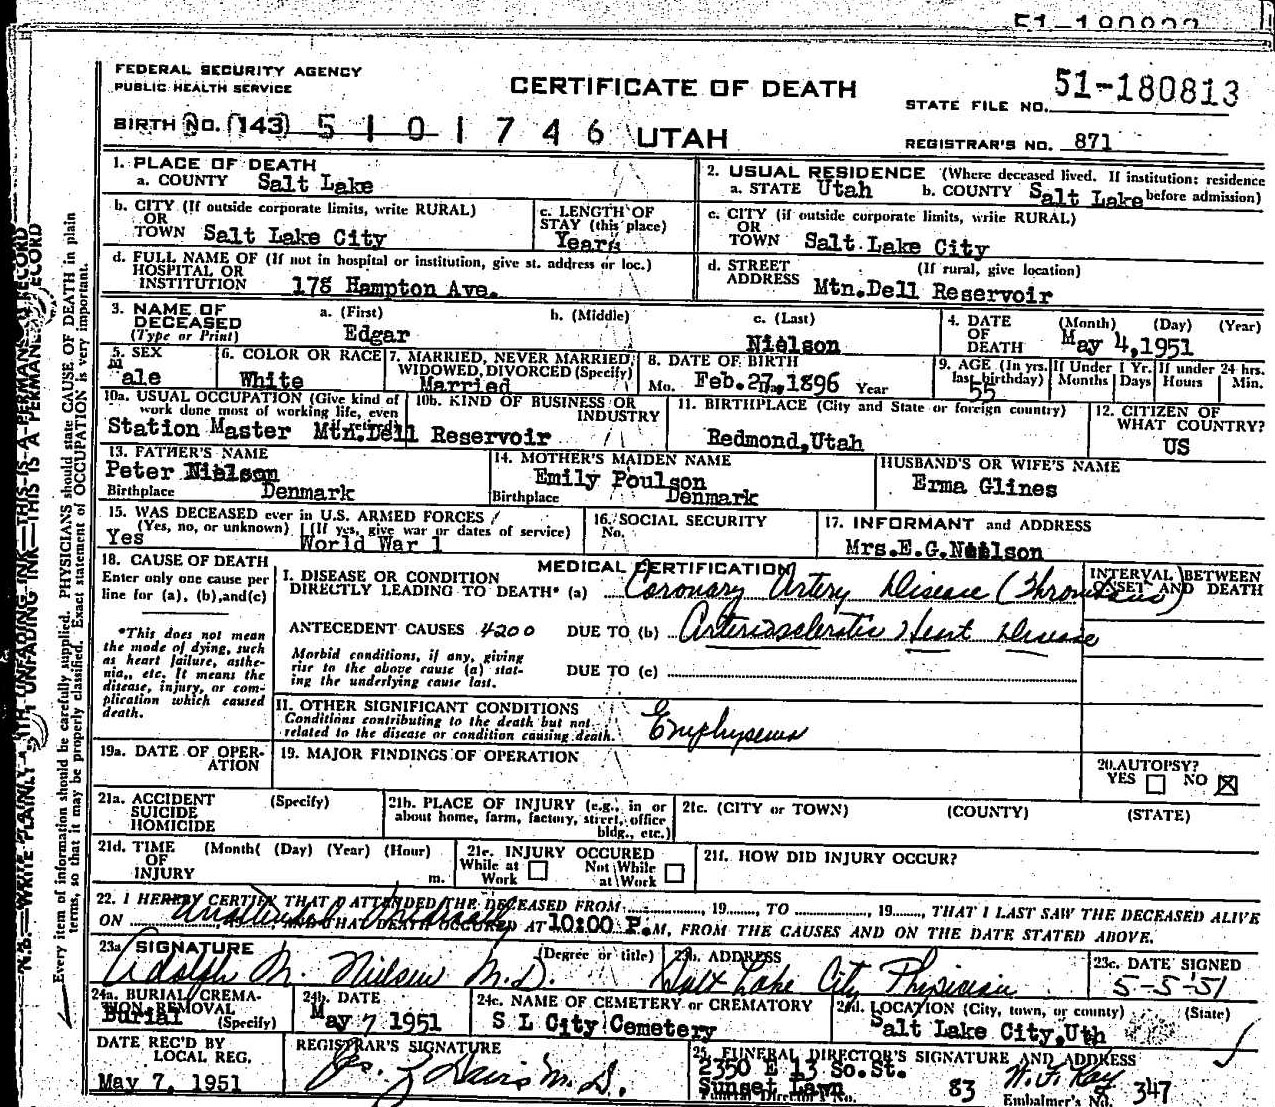 FEDERAL SECURITY AGENCY
PUBLIC HEALTH SERVICE
CERTIFICATE OF DEATH
STATE FILE NO. 51-180813
BIRTH NO. (143) 5 1 0 1 7 4 6 UTAH
REGISTRAR'S NO. 871
1. PLACE OF DEATH
a. COUNTY Salt Lake
2. USUAL RESIDENCE (Where deceased lived. If institution: residence before admission)
a. STATE Utah b. COUNTY Salt Lake
b. CITY (If outside corporate limits, write RURAL) OR TOWN Salt Lake City
c. LENGTH OF STAY (this place) Years
c. CITY (if outside corporate limits, write RURAL) OR TOWN Salt Lake City
d. FULL NAME OF (If not in hospital or institution, give st. address or loc.) HOSPITAL OR INSTITUTION 178 Hampton Ave.
d. STREET ADDRESS (If rural, give location) Mtn.Dell Reservoir
3. NAME OF DECEASED (Type or Print)
a. (First) Edgar
b. (Middle)
c. (Last) Nielson
4. DATE OF DEATH (Month) (Day) (Year) May 4,1951
5. SEX Male
6. COLOR OR RACE White
7. MARRIED, NEVER MARRIED, WIDOWED, DIVORCED (Specify) Married
8. DATE OF BIRTH Mo. Feb.27,1896 Year
9. AGE (In yrs. last birthday) 55
If Under 1 Yr. Months Days
If under 24 hrs. Hours Min.
10a. USUAL OCCUPATION (Give kind of work done most of working life, even retired) Station Master
10b. KIND OF BUSINESS OR INDUSTRY Mtn.Dell Reservoir
11. BIRTHPLACE (City and State or foreign country) Redmond,Utah
12. CITIZEN OF WHAT COUNTRY? US
13. FATHER'S NAME Peter Nielson
Birthplace Denmark
14. MOTHER'S MAIDEN NAME Emily Poulson
Birthplace Denmark
HUSBAND'S OR WIFE'S NAME Erma Glines
15. WAS DECEASED ever in U.S. ARMED FORCES
(Yes, no, or unknown) Yes (If yes, give war or dates of service) World War 1
16. SOCIAL SECURITY No.
17. INFORMANT and ADDRESS Mrs.E.G.Neilson
18. CAUSE OF DEATH
Enter only one cause per line for (a), (b),and(c)
*This does not mean the mode of dying, such as heart failure, asthenia, etc. It means the disease, injury, or complication which caused death.
MEDICAL CERTIFICATION
INTERVAL BETWEEN ONSET AND DEATH
I. DISEASE OR CONDITION DIRECTLY LEADING TO DEATH* (a) Coronary Artery Disease (Thrombosis)
ANTECEDENT CAUSES 4200 DUE TO (b) Arteriosclerotic Heart Disease
Morbid conditions, if any, giving rise to the above cause (a) stating the underlying cause last.
DUE TO (c)
II. OTHER SIGNIFICANT CONDITIONS
Conditions contributing to the death but not related to the disease or condition causing death. Emphysema
19a. DATE OF OPERATION
19. MAJOR FINDINGS OF OPERATION
20. AUTOPSY? YES NO
21a. ACCIDENT SUICIDE HOMICIDE (Specify)
21b. PLACE OF INJURY (e.g., in or about home, farm, factory, street, office bldg., etc.)
21c. (CITY or TOWN) (COUNTY) (STATE)
21d. TIME OF INJURY (Month( (Day) (Year) (Hour) m.
21e. INJURY OCCURED While at Work Not While at Work
21f. HOW DID INJURY OCCUR?
22. I HEREBY CERTIFY THAT I ATTENDED THE DECEASED FROM , 19 , TO , 19 , THAT I LAST SAW THE DECEASED ALIVE
ON , 19 , AND THAT DEATH OCCURED AT 10:00 P.M, FROM THE CAUSES AND ON THE DATE STATED ABOVE.
23a. SIGNATURE (Degree or title) Adolph M. Nielsen M.D.
23b. ADDRESS Salt Lake City Physician
23c. DATE SIGNED 5-5-51
24a. BURIAL, CREMATION, REMOVAL (Specify) Burial
24b. DATE May 7 1951
24c. NAME OF CEMETERY or CREMATORY S L City Cemetery
24d. LOCATION (City, town, or county) (State) Salt Lake City,Uth
DATE REC'D BY LOCAL REG. May 7, 1951
REGISTRAR'S SIGNATURE Davis M.D.
25. FUNERAL DIRECTOR'S SIGNATURE AND ADDRESS
2350 E 13 So.St.
Sunset Lawn 83
Funeral Director's No.
Embalmer's No. 347
N.B.—WRITE PLAINLY WITH UNFADING INK—THIS IS A PERMANENT RECORD
Every item of information should be carefully supplied. PHYSICIANS should state CAUSE OF DEATH in plain terms, so that it may be properly classified. Exact statement of OCCUPATION is very important.